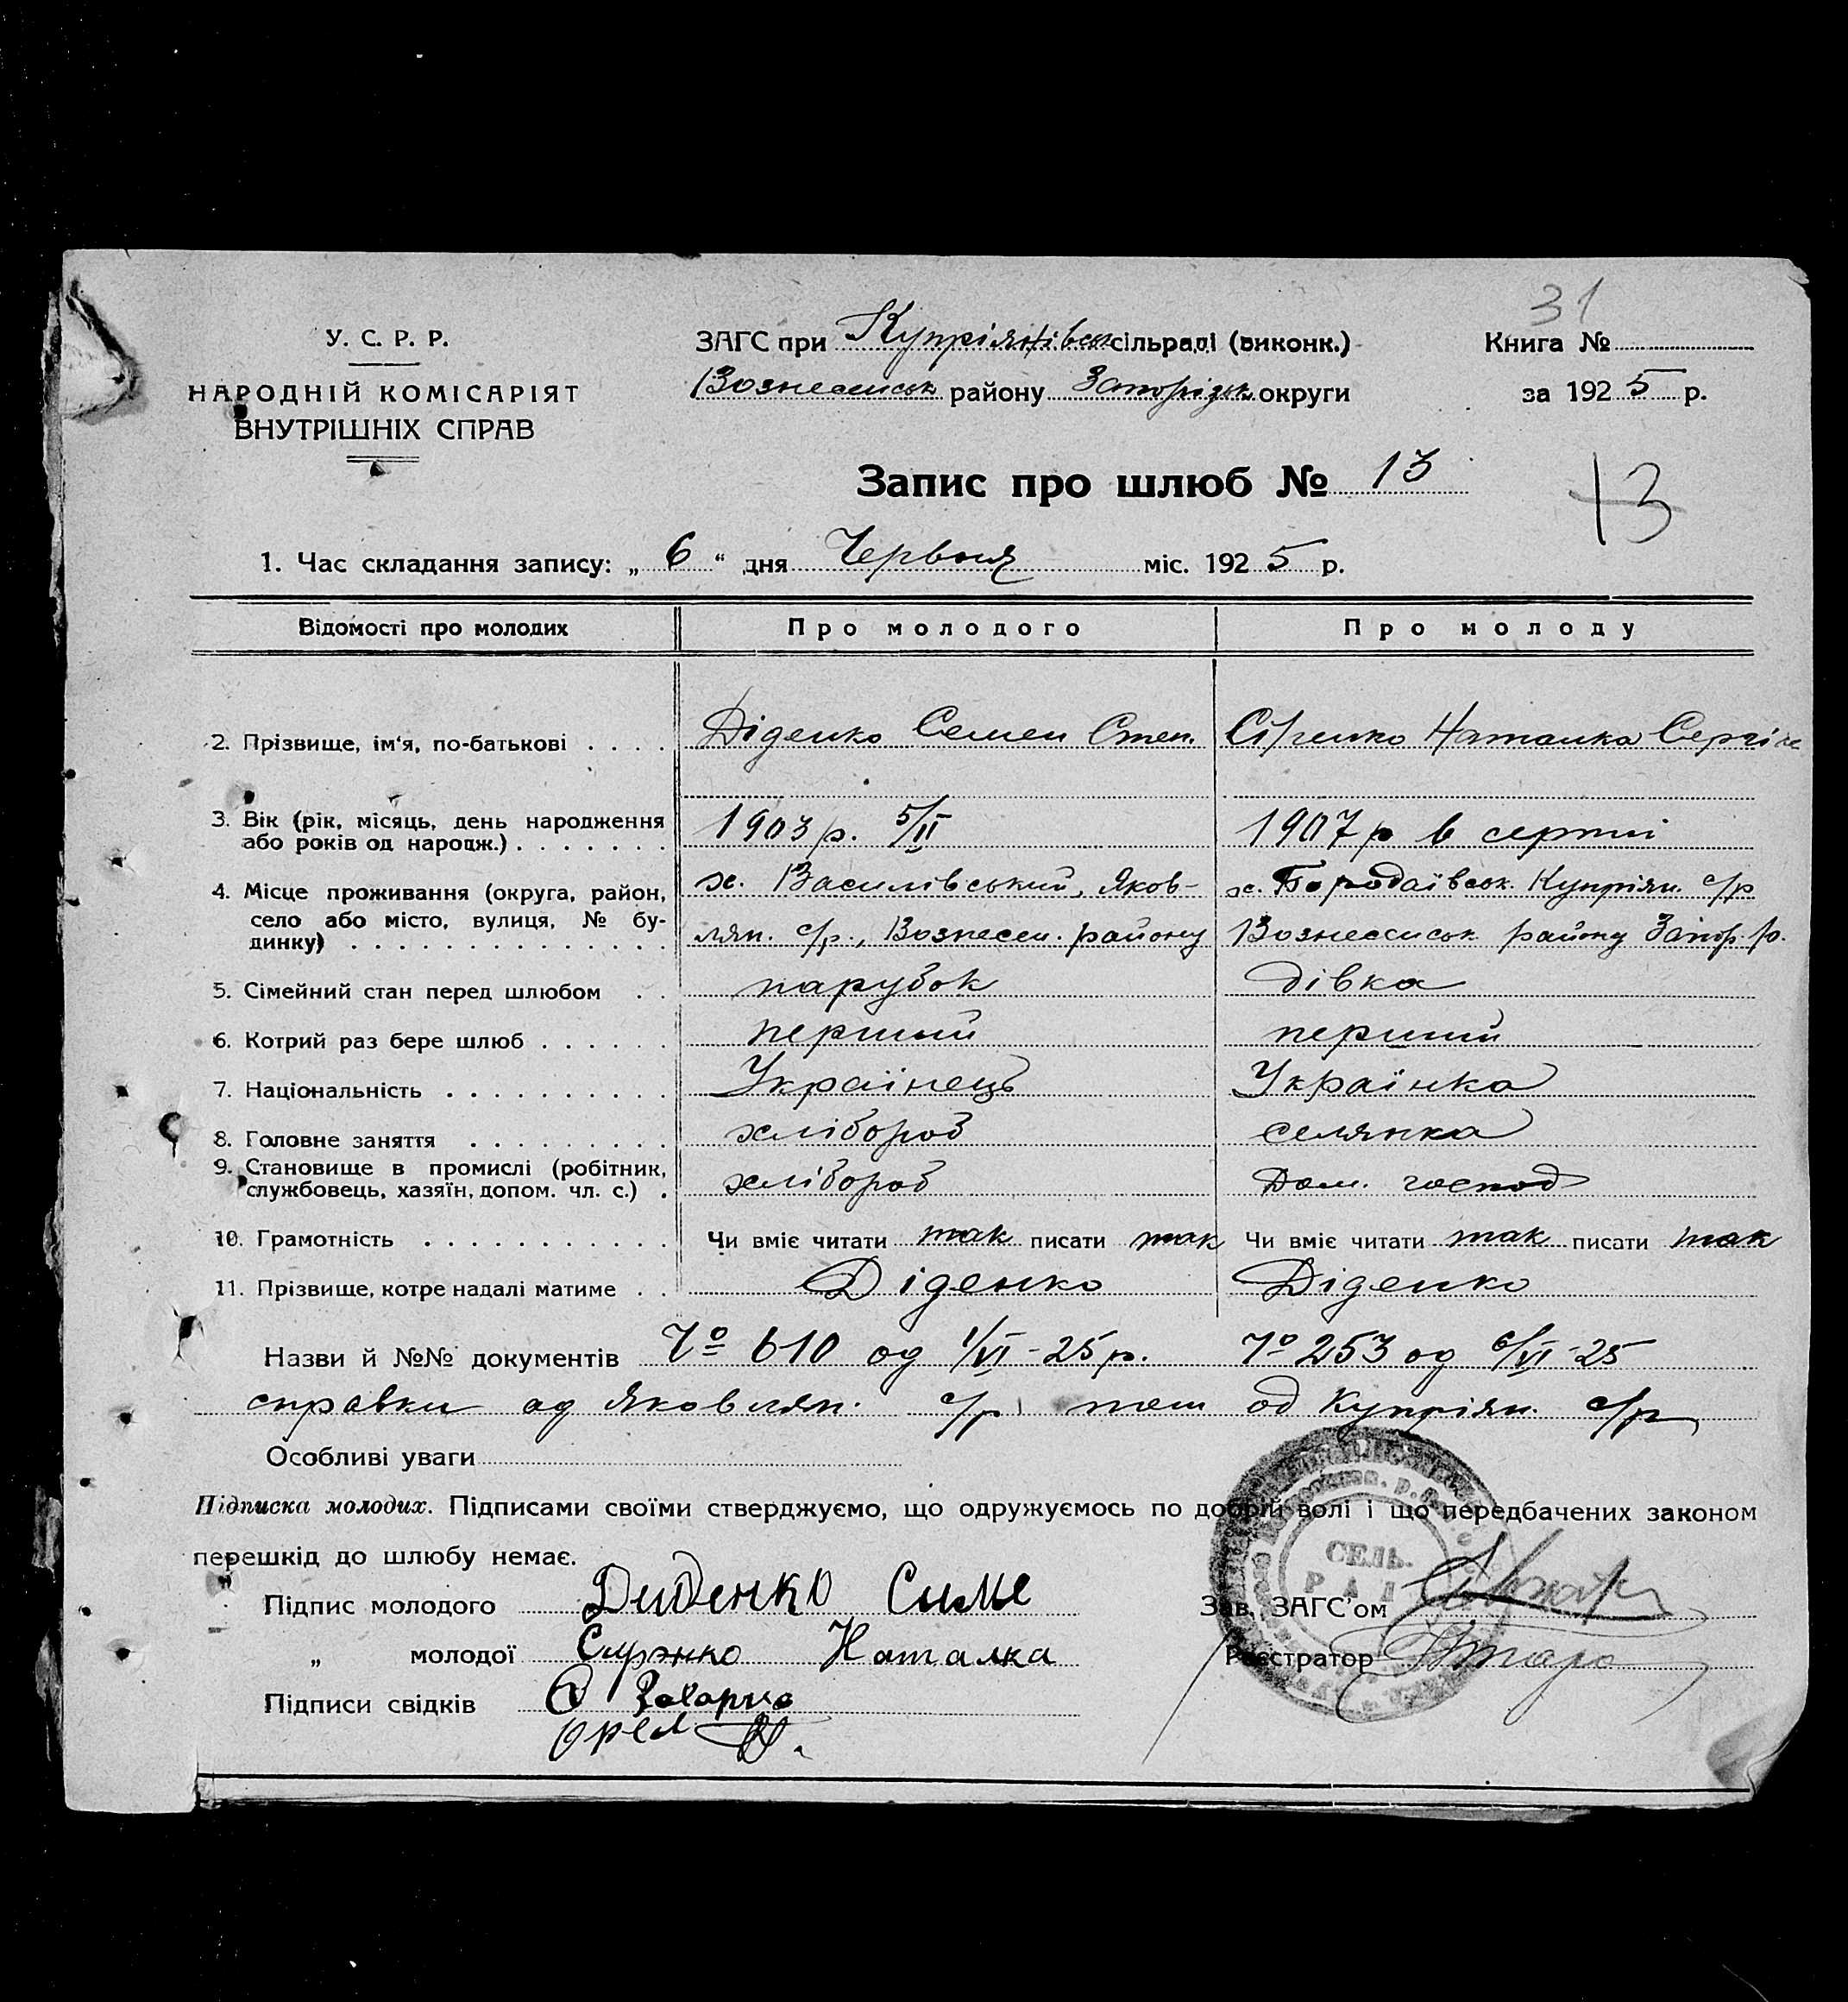 31
У. С. Р. Р. ЗАГС при Купріянівськ сільраді (виконк.) Книга №
НАРОДНІЙ КОМІСАРІЯТ Вознесенськ району Запорізьк округи за 1925 р.
ВНУТРІШНІХ СПРАВ
Запис про шлюб № 13 13
1. Час складання запису: „ 6 “ дня Червня міс. 1925 р.
Відомості про молодих Про молодого Про молоду
2. Прізвище, ім'я, по-батькові . . . . Діденко Семен Степ. Сіренко Наталка Сергіє
3. Вік (рік, місяць, день народження 1903 р. 5/II 1907 р в серпні
або років од народж.) . . . . . . .
4. Місце проживання (округа, район, х. Василівський, Яков- х. Бородаївськ. Купріян. с/р
село або місто, вулиця, № бу- лян. с/р., Вознесен. району Вознесенськ району Запор. о.
динку) . . . . . . . . . . . . . .
5. Сімейний стан перед шлюбом . . парубок дівка
6. Котрий раз бере шлюб . . . . . . перший перший
7. Національність . . . . . . . . . . Українець Українка
8. Головне заняття . . . . . . . . . хлібороб селянка
9. Становище в промислі (робітник,
службовець, хазяїн, допом. чл. с.) . хлібороб Дом. господ
10. Грамотність . . . . . . . . . . . Чи вміє читати так писати так Чи вміє читати так писати так
11. Прізвище, котре надалі матиме . . Діденко Діденко
Назви й №№ документів № 610 од 1/VI-25 р. № 253 од 6/VI-25
справки од Яковлян. с/р од Купріян. с/р
Особливі уваги
Підписка молодих. Підписами своїми стверджуємо, що одружуємось по добрій волі і що передбачених законом
перешкід до шлюбу немає.
СЕЛЬ-
РАД
Підпис молодого Диденко Симе Зав. ЗАГС'ом
„ молодої Сирэнко Наталка Реєстратор
Підписи свідків Захарко
Орел